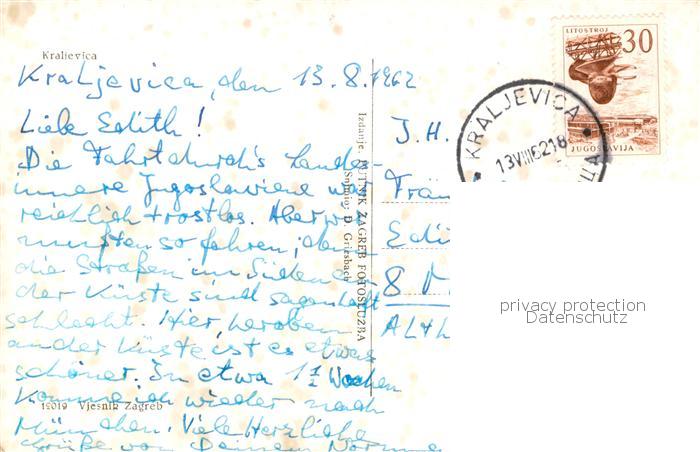 Kraljevica
Kraljevica, den 13.8.1962
Liebe Edith!
Die Fahrt durch's Landes-
innere Jugoslawiens war
reichlich trostlos. Aber wir
mussten so fahren, denn
die Straßen im Süden
der Küste sind sagenhaft
schlecht. Hier, heroben
an der Küste ist es etwas
schöner. In etwa 1 1/2 Wochen
komme ich wieder nach
München. Viele Herzliche
Grüße von Deinem
15019 Vjesnik Zagreb
Izdanje PUTNIK ZAGREB FOTOSLUŽBA
Snimio: D. Griesbach
J.H.
Frän
Edi
8 M
Alth
LITOSTROJ
30
JUGOSLAVIJA
KRALJEVICA
13VIII6218
privacy protection
Datenschutz